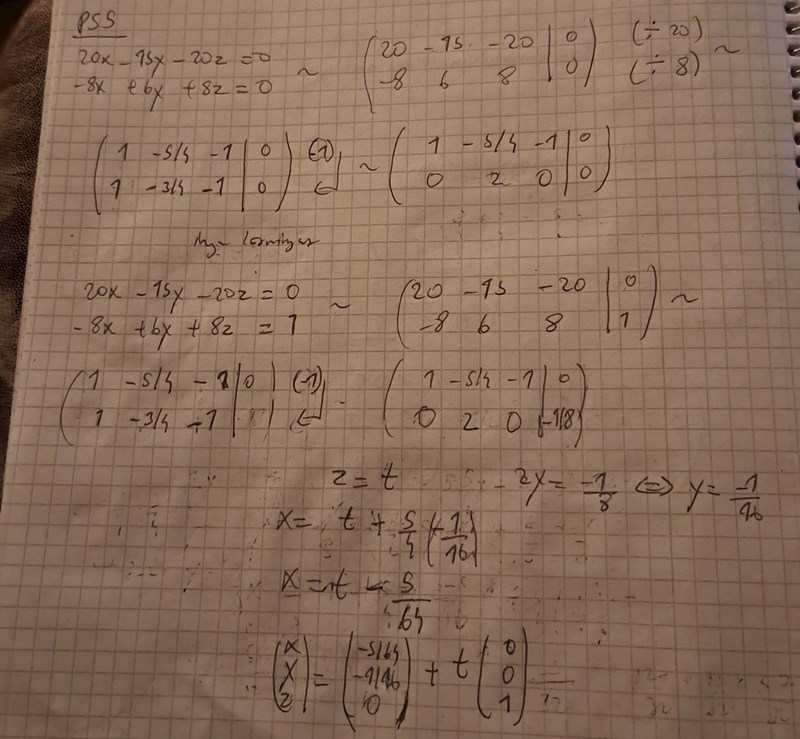 PSS
20x - 15y - 20z = 0
-8x + 6y + 8z = 0 ~ ( 20 -15 -20 | 0 ; -8 6 8 | 0 ) (÷ 20) (÷ 8) ~
( 1 -5/4 -1 | 0 ; 1 -3/4 -1 | 0 ) (-1) ~ ( 1 -5/4 -1 | 0 ; 0 2 0 | 0 )
20x - 15y - 20z = 0
-8x + 6y + 8z = 1 ~ ( 20 -15 -20 | 0 ; -8 6 8 | 1 ) ~
( 1 -5/4 -1 | 0 ; 1 -3/4 -1 | ) (-1) ( 1 -5/4 -1 | 0 ; 0 2 0 | -1/8 )
z = t 2y = -1/8 ⇔ y = -1/16
x = t + 5/4 (-1/16)
x = t - 5/64
( x ; y ; z ) = ( -5/64 ; -1/16 ; 0 ) + t ( 0 ; 0 ; 1 )